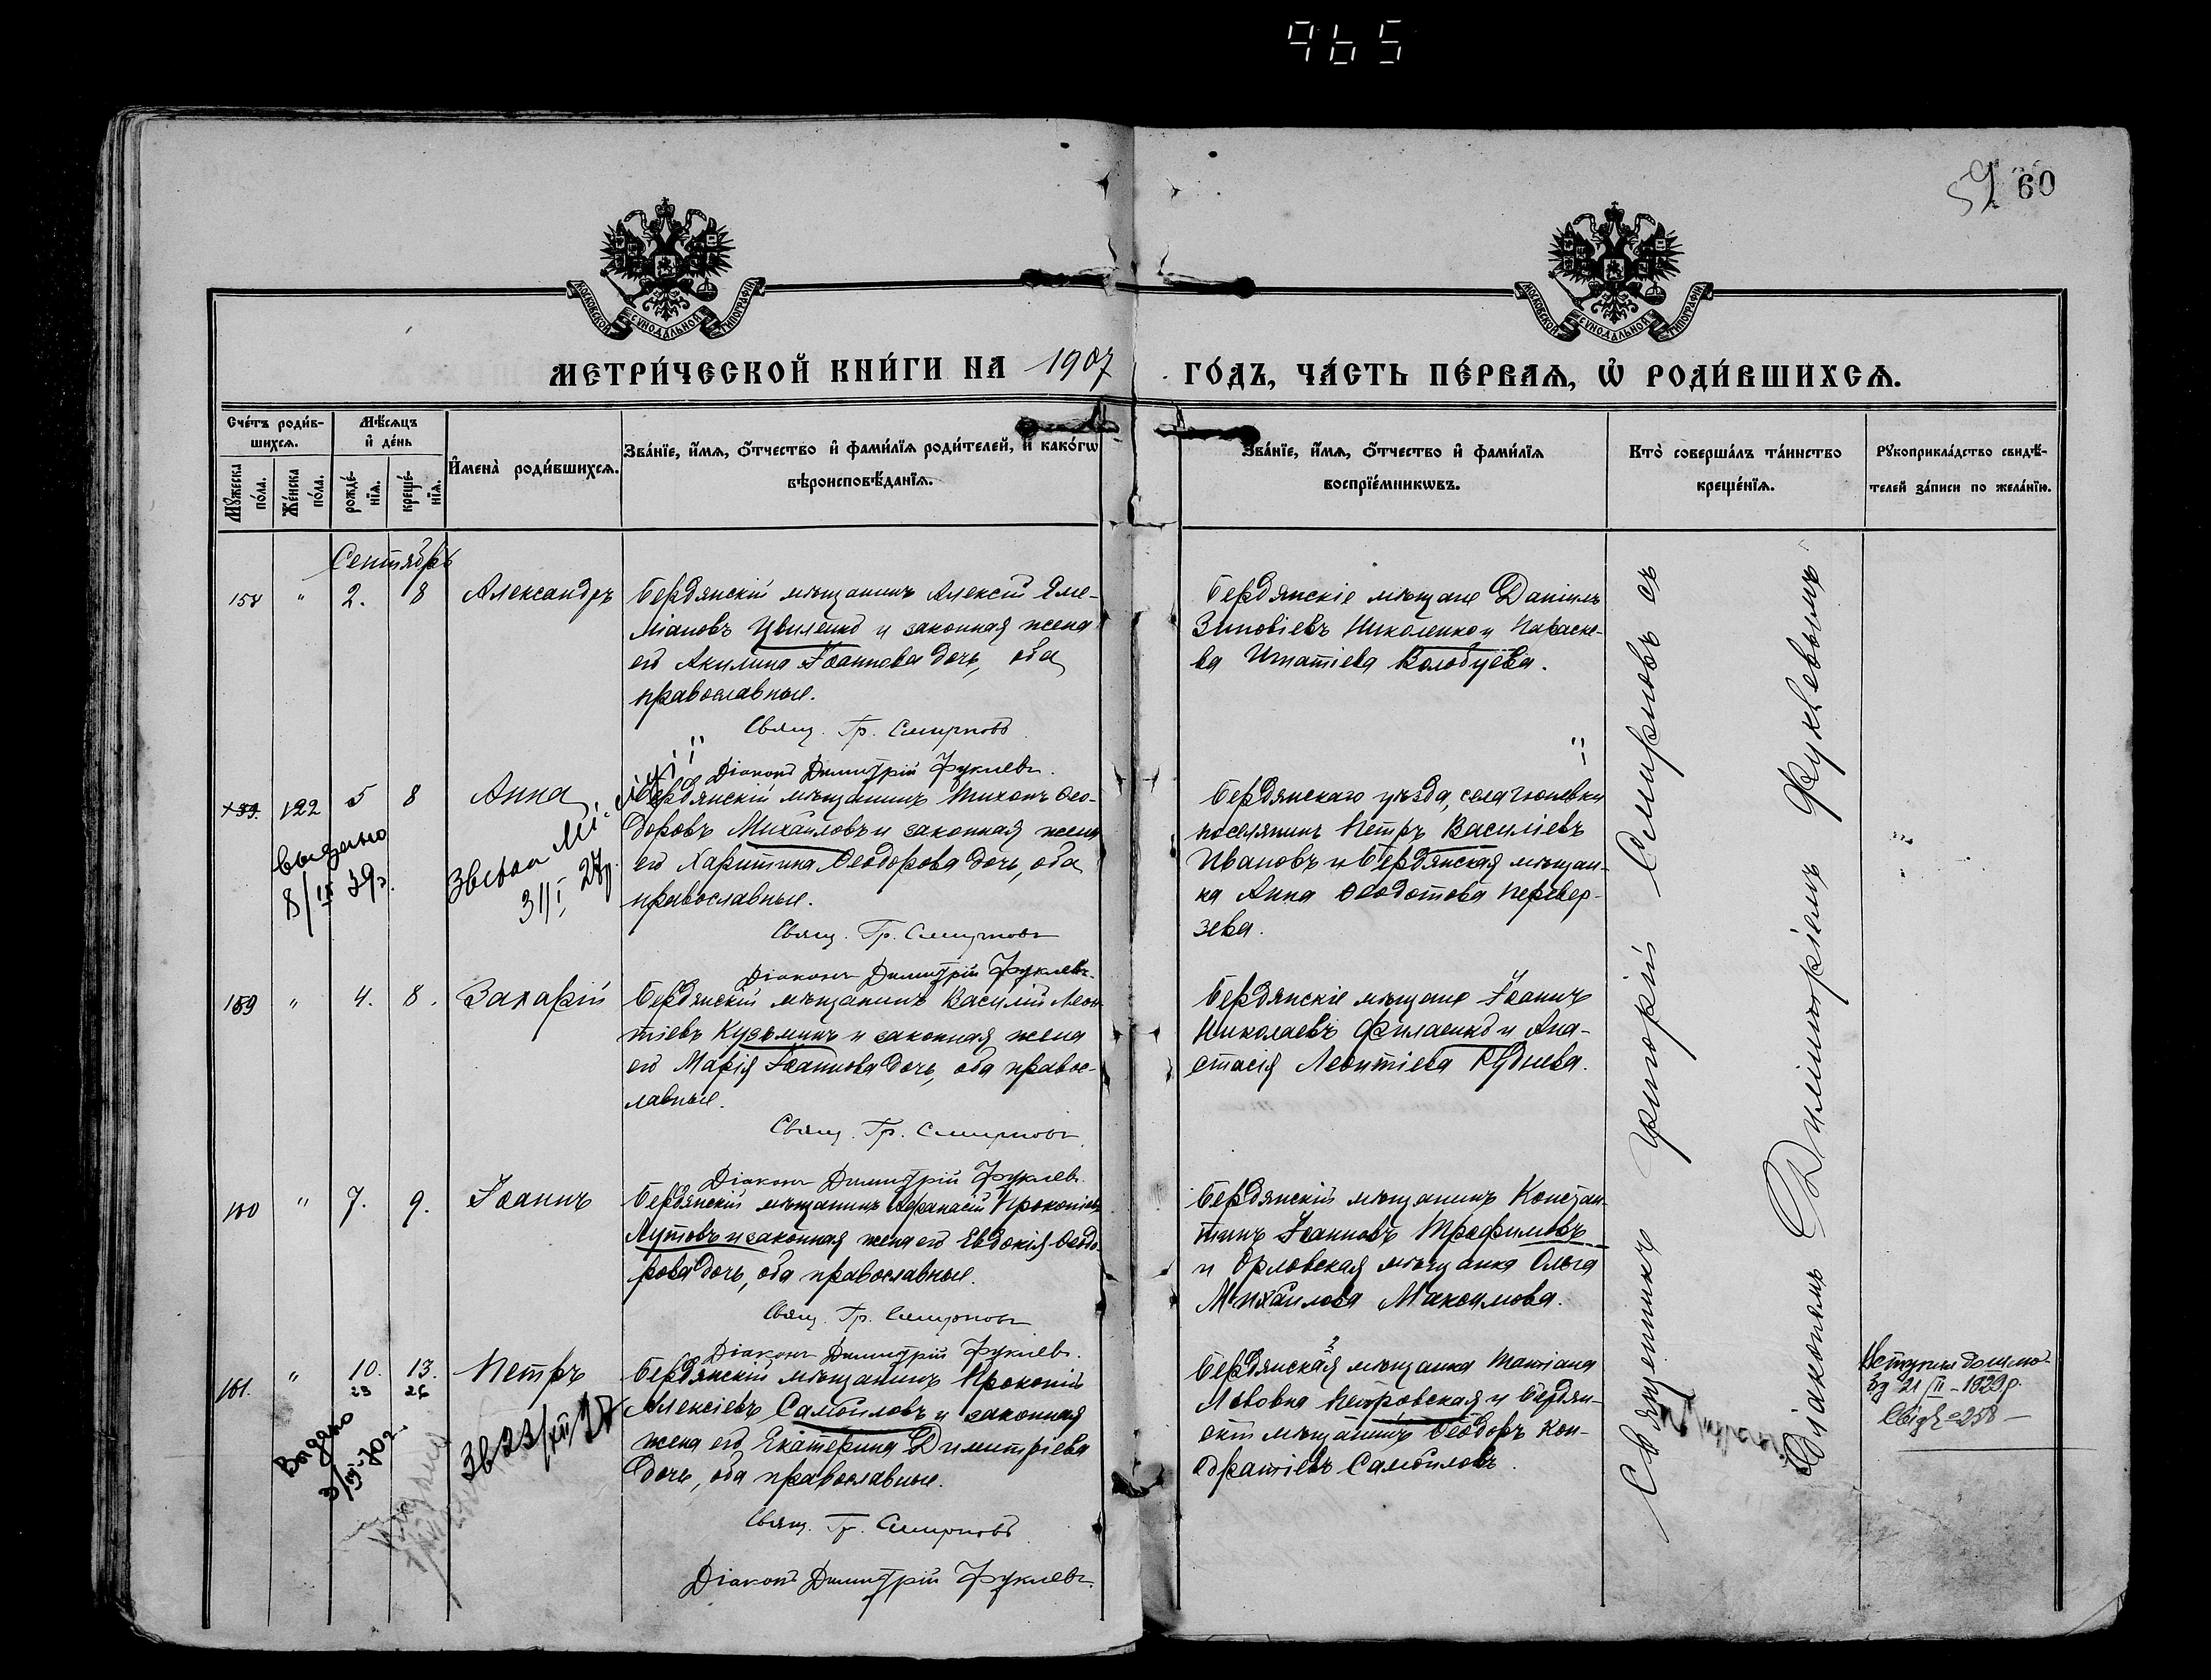 965
59 60
МОСКОВСКОЙ СѴНОДАЛЬНОЙ ТИПОГРАФІИ
МОСКОВСКОЙ СѴНОДАЛЬНОЙ ТИПОГРАФІИ
МЕТРИ́ЧЕСКОЙ КНИ́ГИ НА 1907 ГО́ДЪ, ЧА́СТЬ ПЕ́РВАѦ, Ѡ҆ РОДИ́ВШИХСѦ.
Сче́тъ роди́в-
шихсѧ.
Мѣ́сѧцъ
и҆ де́нь
Мꙋ́жеска
по́ла.
Же́нска
по́ла.
рожде́-
нїѧ.
креще́-
нїѧ.
И҆мена̀ роди́вшихсѧ.
Зва́нїе, и҆́мѧ, ѻ҆́тчество и҆ фами́лїѧ роди́телей, и҆ како́гѡ
вѣроисповѣ́данїѧ.
Зва́нїе, и҆́мѧ, ѻ҆́тчество и҆ фами́лїѧ
воспрїе́мникѡвъ.
Кто̀ соверша́лъ та́инство
креще́нїѧ.
Рꙋкоприкла́дство свидѣ́-
телей за́писи по жела́нїю.
Сентябрь
158 " 2. 8 Александръ
Бердянскій мѣщанинъ Алексій Еме-
ліановъ Цвиленко и законная жена
его Акилина Іоаннова дочь, оба
православные.
Свящ. Гр. Смирновъ
Діаконъ Димитрій Фукиевъ.
Бердянскіе мѣщане Даніилъ
Зиновіевъ Николенко и Параске-
ва Игнатіева Волобуева.
159. 122 5 8 Анна
выдано
8/IX 39г.
31/I 27р.
Бердянскій мѣщанинъ Тихонъ Ѳео-
доровъ Михайловъ и законная жена
его Харитина Ѳеодорова дочь, оба
православные.
Свящ. Гр. Смирновъ
Діаконъ Димитрій Фукиевъ.
Бердянскаго уѣзда, села Гюневки
поселянинъ Петръ Василіевъ
Ивановъ и Бердянская мѣщан-
ка Анна Ѳеодотова Перевер-
зева.
159 " 4. 8. Захарій
Бердянскій мѣщанинъ Василій Леон-
тіевъ Кузьминъ и законная жена
его Марія Іоаннова дочь, оба правос-
лавные.
Свящ. Гр. Смирновъ
Діаконъ Димитрій Фукиевъ.
Бердянскіе мѣщане Іоаннъ
Николаевъ Филаенко и Ана-
стасія Леонтіева Руднева.
160 " 7. 9. Іоаннъ
Бердянскій мѣщанинъ Аѳанасій Прокопіевъ
Лутовъ и законная жена его Евдокія Ѳеодо-
рова дочь, оба православные.
Свящ. Гр. Смирновъ
Діаконъ Димитрій Фукиевъ.
Бердянскій мѣщанинъ Констан-
тинъ Іоанновъ Трофимовъ
и Орловская мѣщанка Ольга
Михаилова Максимова.
161. " 10. 13. Петръ
23 26
Выдано
Зв 23/XII 27
Бердянскій мѣщанинъ Прокопій
Алексіевъ Самойловъ и законная
жена его Екатерина Димитріева
дочь, оба православные.
Свящ. Гр. Смирновъ
Діаконъ Димитрій Фукиевъ.
Бердянская мѣщанка Татіана
Львовна Петровская и Бердян-
скій мѣщанинъ Ѳеодоръ Кон-
дратіевъ Самойловъ.
Священникъ Григорій Смирновъ съ
Діакономъ Димитріемъ Фукіевымъ
21/II - 1929р.
258